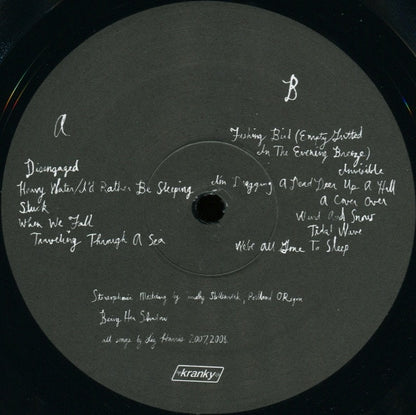 A
Disengaged
Heavy Water/I'd Rather Be Sleeping
Stuck
When We Fall
Traveling Through A Sea
B
Fishing Bird (Empty Gutted
In The Evening Breeze)
Invisible
I'm Dragging A Dead Deer Up A Hill
A Cover Over
Wind And Snow
Tidal Wave
We've All Gone To Sleep
Stereophonic Mastering by Timothy Stollenwerk, Portland Oregon
Being Her Shadow
all songs by Liz Harris 2007, 2008
kranky